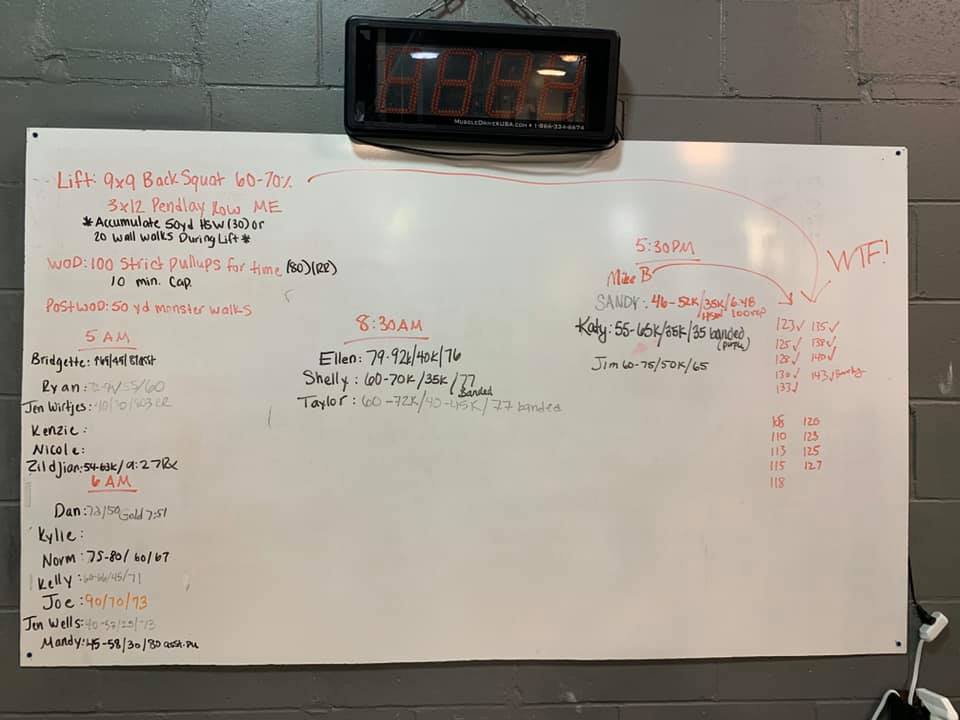 MUSCLEDRIVERUSA.COM • 1-866-334-6674
Lift: 9x9 Back Squat 60-70%
3x12 Pendlay Row ME
*Accumulate 50yd HSW (30) or
20 Wall Walks During Lift*
WOD: 100 Strict Pullups for time (80) (RR)
10 min. Cap.
Post WOD: 50 yd monster walks
5 AM
Bridgette:
Ryan:
Jen Wirtjes:
Kenzie:
Nicole:
Zildjian: 54-63k/9:27 Rx
6 AM
Dan: 72/50 Gold 7:51
Kylie:
Norm: 75-80/60/67
Kelly:
Joe: 90/70/73
Jen Wells:
Mandy: 45-58/30/80 asst. PU
8:30 AM
Ellen: 79-92k/40k/76
Shelly: 60-70K/35K/77
Banded
Taylor: 60-72K/40-45K/77 banded
5:30 PM
Mike B
SANDY: 46-52K/35K/6:48
HSW 100 rep
Katy: 55-65K/35K/35 banded
(purple)
Jim 60-75/50K/65
WTF!
123✓ 135✓
125✓ 138✓
128✓ 140✓
130✓ 143✓
133✓
108 120
110 123
113 125
115 127
118